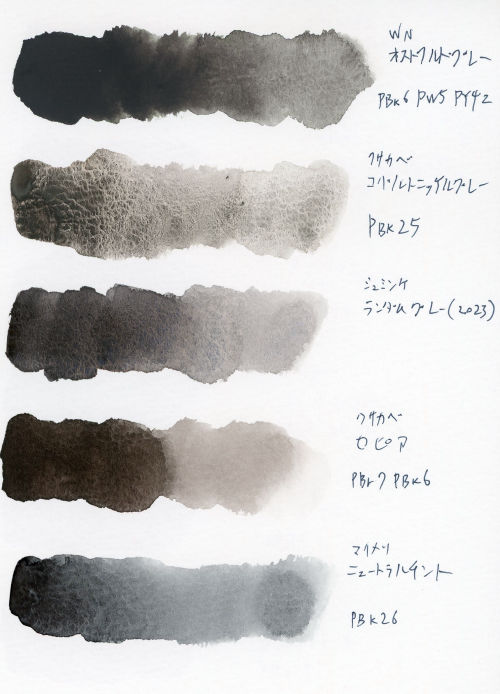 WN
オストワルドグレー
PBk6 PW5 PY42
クサカベ
コバルトニッケルグレー
PBK25
シュミンケ
ランダムグレー(2023)
クサカベ
セピア
PBr7 PBk6
マイメリ
ニュートラルチント
PBk26